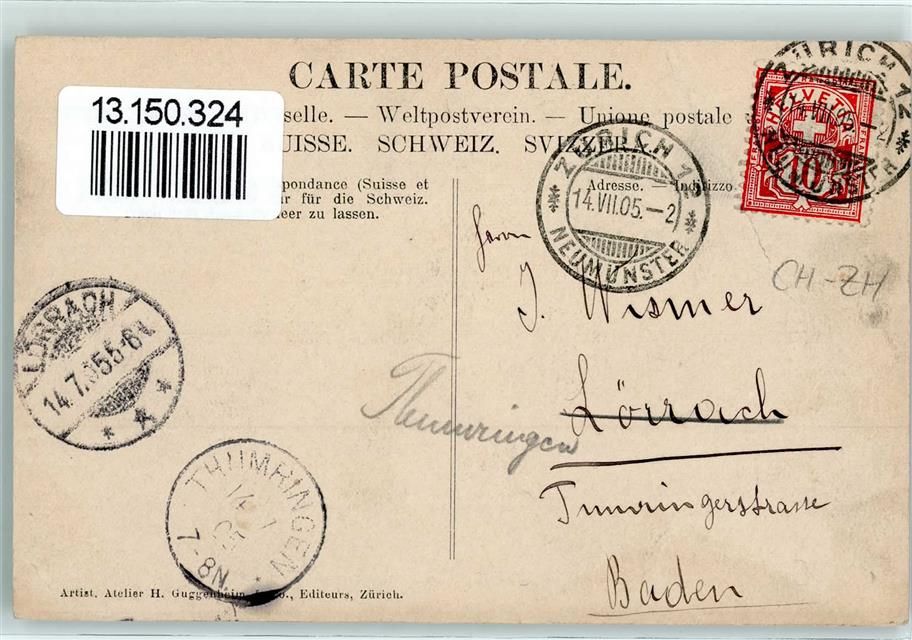 CARTE POSTALE.
13.150.324
selle. — Weltpostverein. — Unione postale
UISSE. SCHWEIZ. SVIZZERA.
pondance (Suisse et
ir für die Schweiz.
leer zu lassen.
Adresse. — Indirizzo
HELVETIA
10
ZÜRICH 12
14.VII.05.–2
NEUMÜNSTER
ZÜRICH 12
14.VII.05.–2
NEUMÜNSTER
CH-ZH
Herrn
J. Wismer
Lörrach
Thumringen
Tumringerstrasse
Baden
LÖRRACH
14.7.05 5-6N.
THUMRINGEN
14 7
7-8N.
Artist. Atelier H. Guggenheim & Co., Editeurs, Zürich.